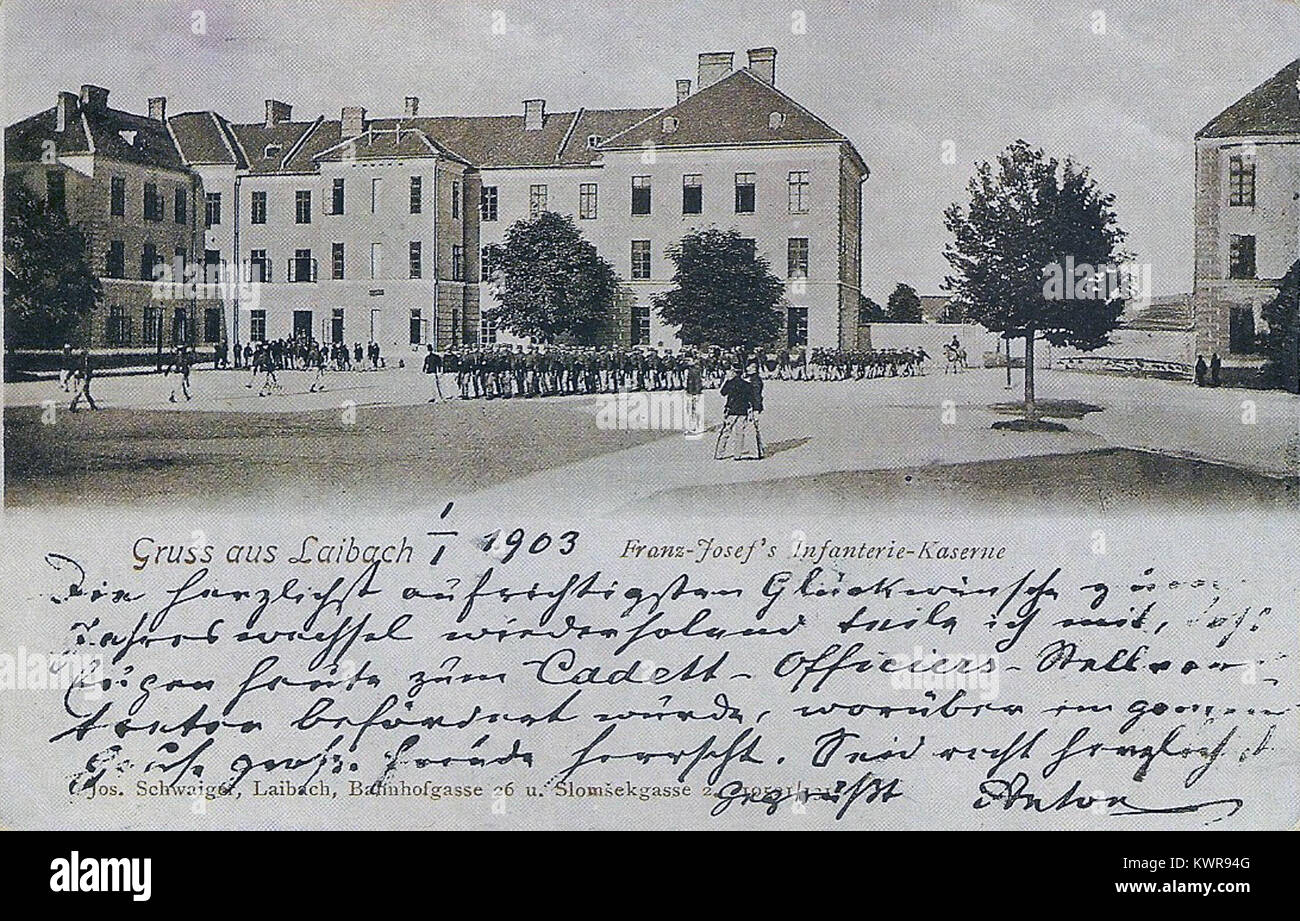 Gruss aus Laibach 1/1 1903 Franz-Josef's Infanterie-Kaserne
Die herzlichst aufrichtigsten Glückwünsche zum
Jahreswechsel wiederholend teile ich mit, daß
Eugen heute zum Cadett-Officiers-Stellver-
treter befördert wurde, worüber im ganzen
große Freude herrscht. Seid recht herzlichst
Jos. Schwaiger, Laibach, Bahnhofgasse 26 u. Slomšekgasse
gegrüßt Anton
alamy
Image ID: KWR94G
www.alamy.com